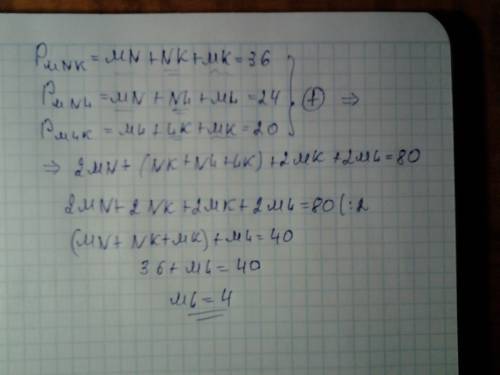 P_MNK = MN + NK + MK = 36
P_MNL = MN + NL + ML = 24 (+) ⇒
P_MLK = ML + LK + MK = 20
⇒ 2MN + (NK + NL + LK) + 2MK + 2ML = 80
2MN + 2NK + 2MK + 2ML = 80 (:2
(MN + NK + MK) + ML = 40
36 + ML = 40
ML = 4